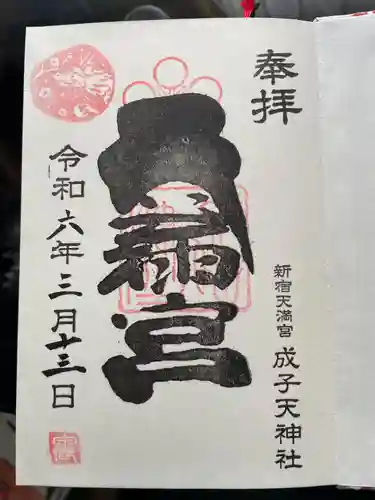 奉拝
新宿天満宮 成子天神社
天満宮
令和六年三月十三日